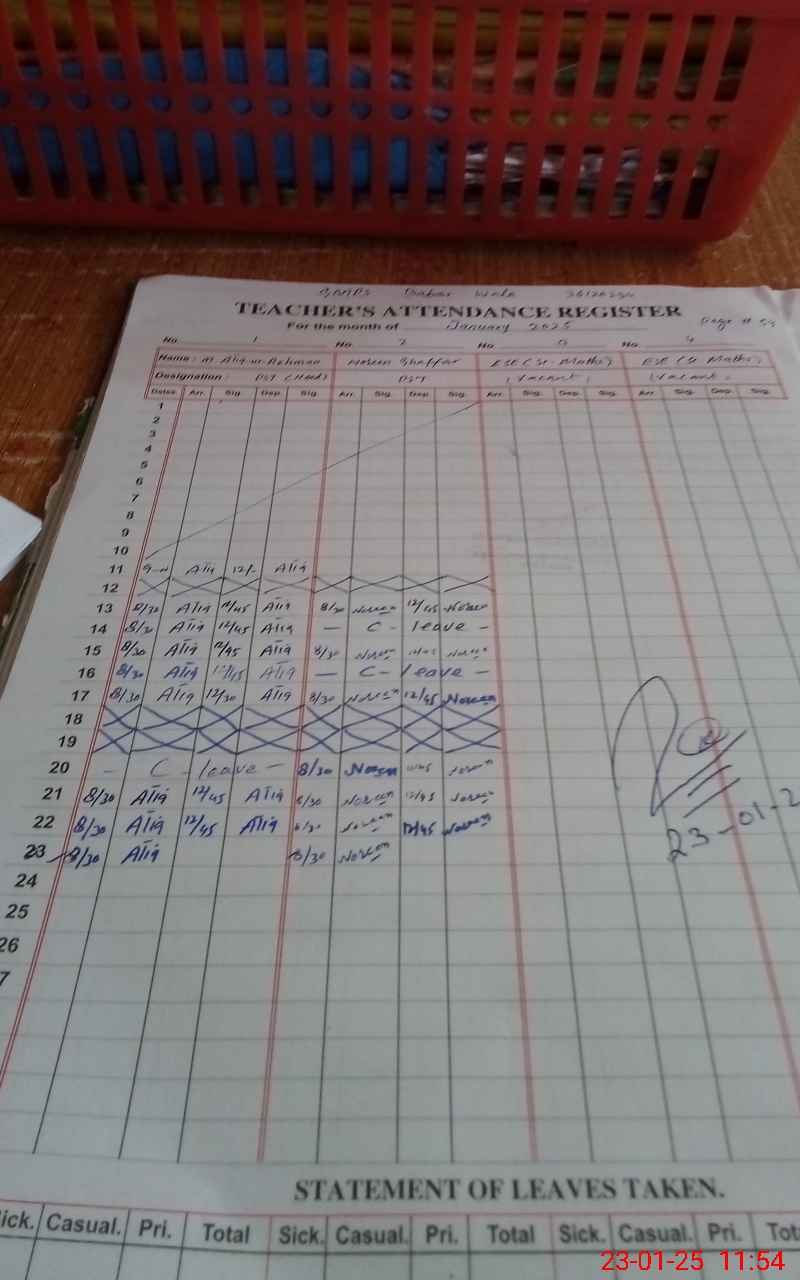 TEACHER'S ATTENDANCE REGISTER
For the month of January 2025 Page #
No. 1 No. 2 No. 3 No. 4
Name: M. Atiq-ur-Rehman Noreen Ghaffar ESE (Sc-Maths) ESE (Sc Maths)
Designation: PST (Head) PST (Vacant) (Vacant)
Dates Arr. Sig. Dep. Sig. Arr. Sig. Dep. Sig. Arr. Sig. Dep. Sig. Arr. Sig. Dep. Sig.
1
2
3
4
5
6
7
8
9
10
11 Atiq 12/- Atiq
12
13 8/30 Atiq 12/45 Atiq 8/30 Noreen 12/45 Noreen
14 8/30 Atiq 12/45 Atiq — C - leave -
15 8/30 Atiq 12/45 Atiq 8/30 Noreen 12/45 Noreen
16 8/30 Atiq 12/45 Atiq — C - leave -
17 8/30 Atiq 12/30 Atiq 8/30 Noreen 12/45 Noreen
18
19
20 - C - leave - 8/30 Noreen 12/45 Noreen
21 8/30 Atiq 12/45 Atiq 8/30 Noreen 12/45 Noreen
22 8/30 Atiq 12/45 Atiq 8/30 Noreen 12/45 Noreen
23 8/30 Atiq 8/30 Noreen
23-01-2
24
25
26
7
STATEMENT OF LEAVES TAKEN.
ick. Casual. Pri. Total Sick. Casual. Pri. Total Sick. Casual. Pri. Tot
23-01-25 11:54